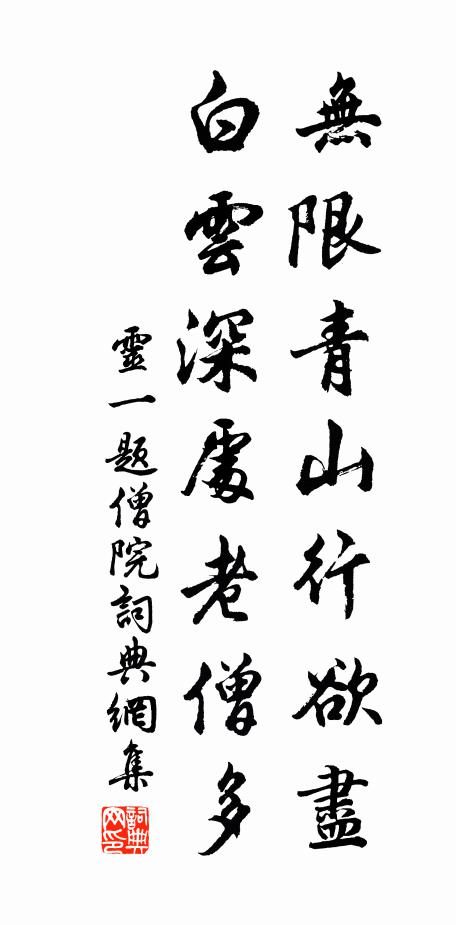 無限青山行欲盡
白雲深處老僧多
靈一題僧院詞典網集
詞典網印